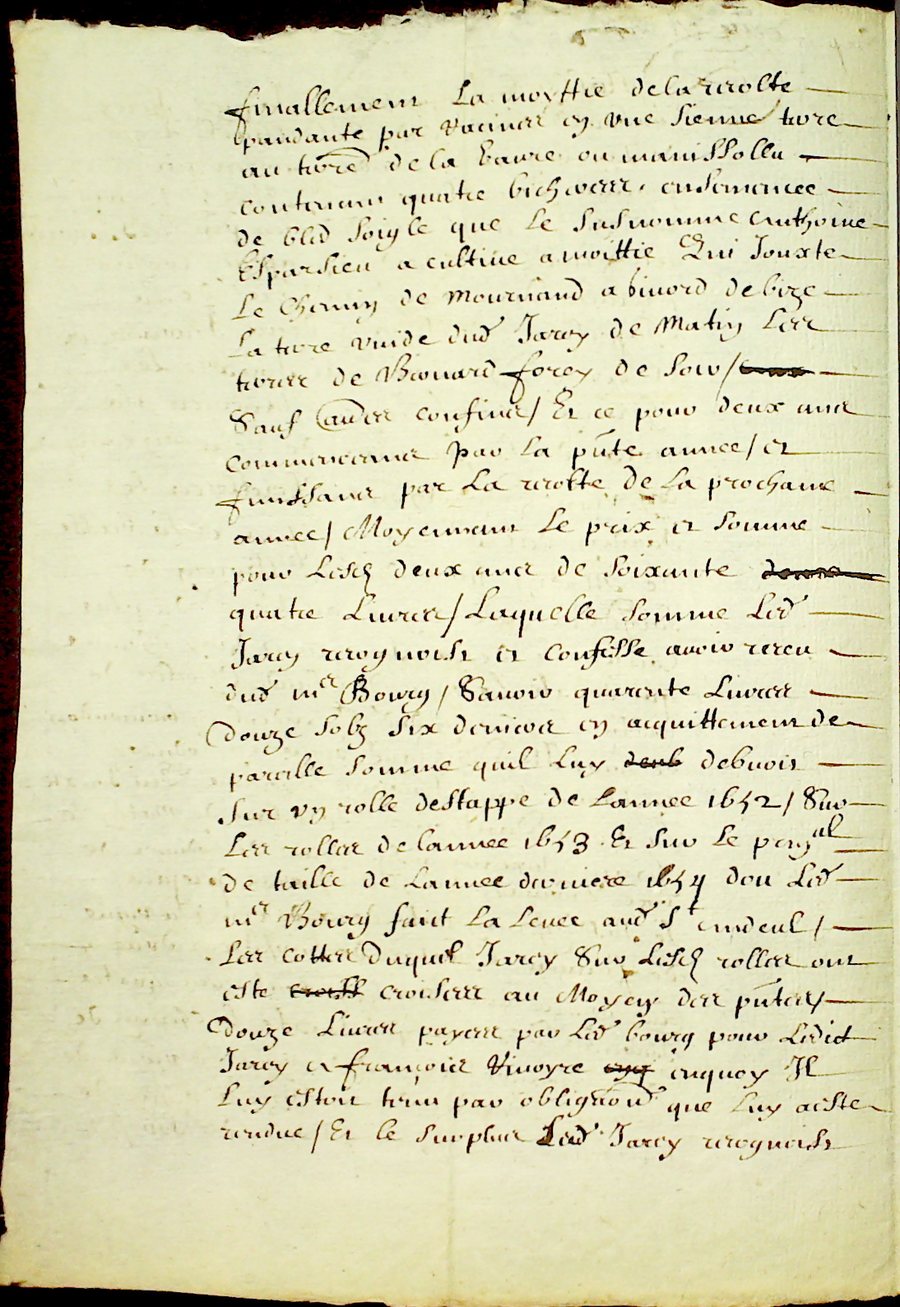 finallement La moyttie de la recolte
pandante par racines en une sienne terre
au terre de la Baure ou manissolla
contenant quatre bicheres ensemence
de bled soigle que le susnomme Enthoine
Esparsieu a cultive a moittie Qui Jouxte
Le Chemin de Mournand a bivord de bize
La terre vuide dud Jarcy de Matin Les
terres de forey de Soir /
Sauf autres confins / Et ce pour deux ans
commenceans par la pnte annee / et
finissans par La recolte de La prochaine
annee / Moyennant le prix et somme
pour lesd deux ans de soixante
quatre Livres / Laquelle somme Led
Jarcy recognoist et confesse avoir receu
dud mre Bourg / Savoir quarente Livres
douze solz six deniers en acquittement de
pareille somme quil luy deub debvoit
sur un rolle destappe de Lannee 1652 / Sur
Les rolles de lannee 1653 Et sur le
de taille de Lannee derniere 1654 dou Led
mre Bourg faict La Levee aud St /
Les cottes duquel Jarcy Sur lesd rolles ont
este croisees au Moyen des pntes /
Douze Livres payees par Led bourg pour Ledict
Jarcy a francois enquoy Il
Luy estoit tenu par obligaon que luy a este
rendue / Et le surplus Led Jarcy recognoist